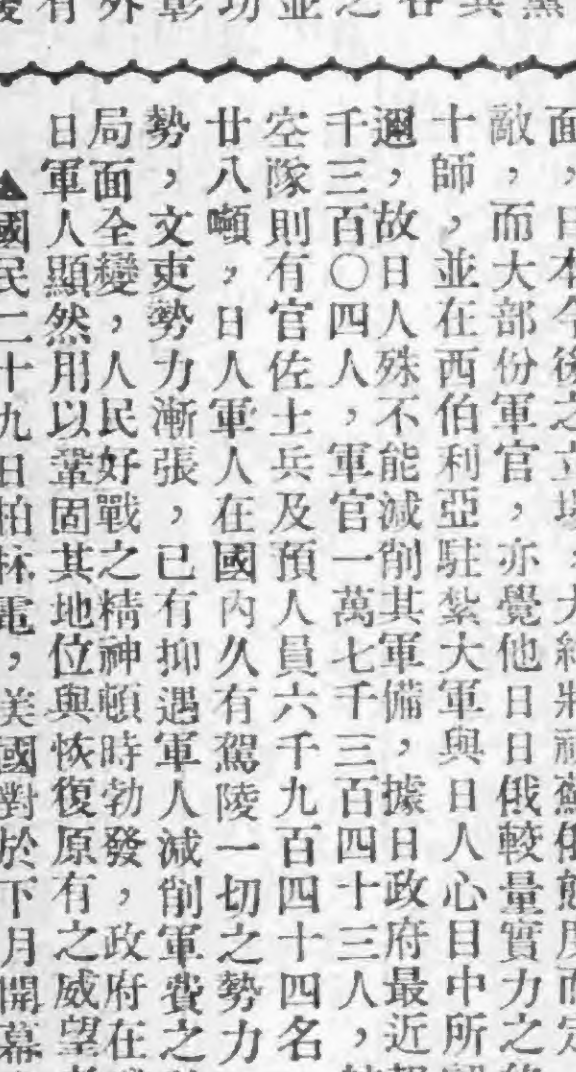 其
之
並
功
彰
外
有
面，日本今後之立場，大約將視蘇俄態度而定
敵，而大部份軍官，亦覺他日日俄較量實力之
十師，並在西伯利亞駐紮大軍與日人心目中所
邇，故日人殊不能減削其軍備，據日政府最近
千三百〇四人，軍官一萬七千三百四十三人，
空隊則有官佐士兵及預人員六千九百四十四名
廿八噸，日人軍人在國內久有駕陵一切之勢力
勢，文吏勢力漸張，已有抑遇軍人減削軍費之
局面全變，人民好戰之精神頓時勃發，政府在
日軍人顯然用以鞏固其地位與恢復原有之威望
▲國民二十九日柏林電，美國對於下月開幕